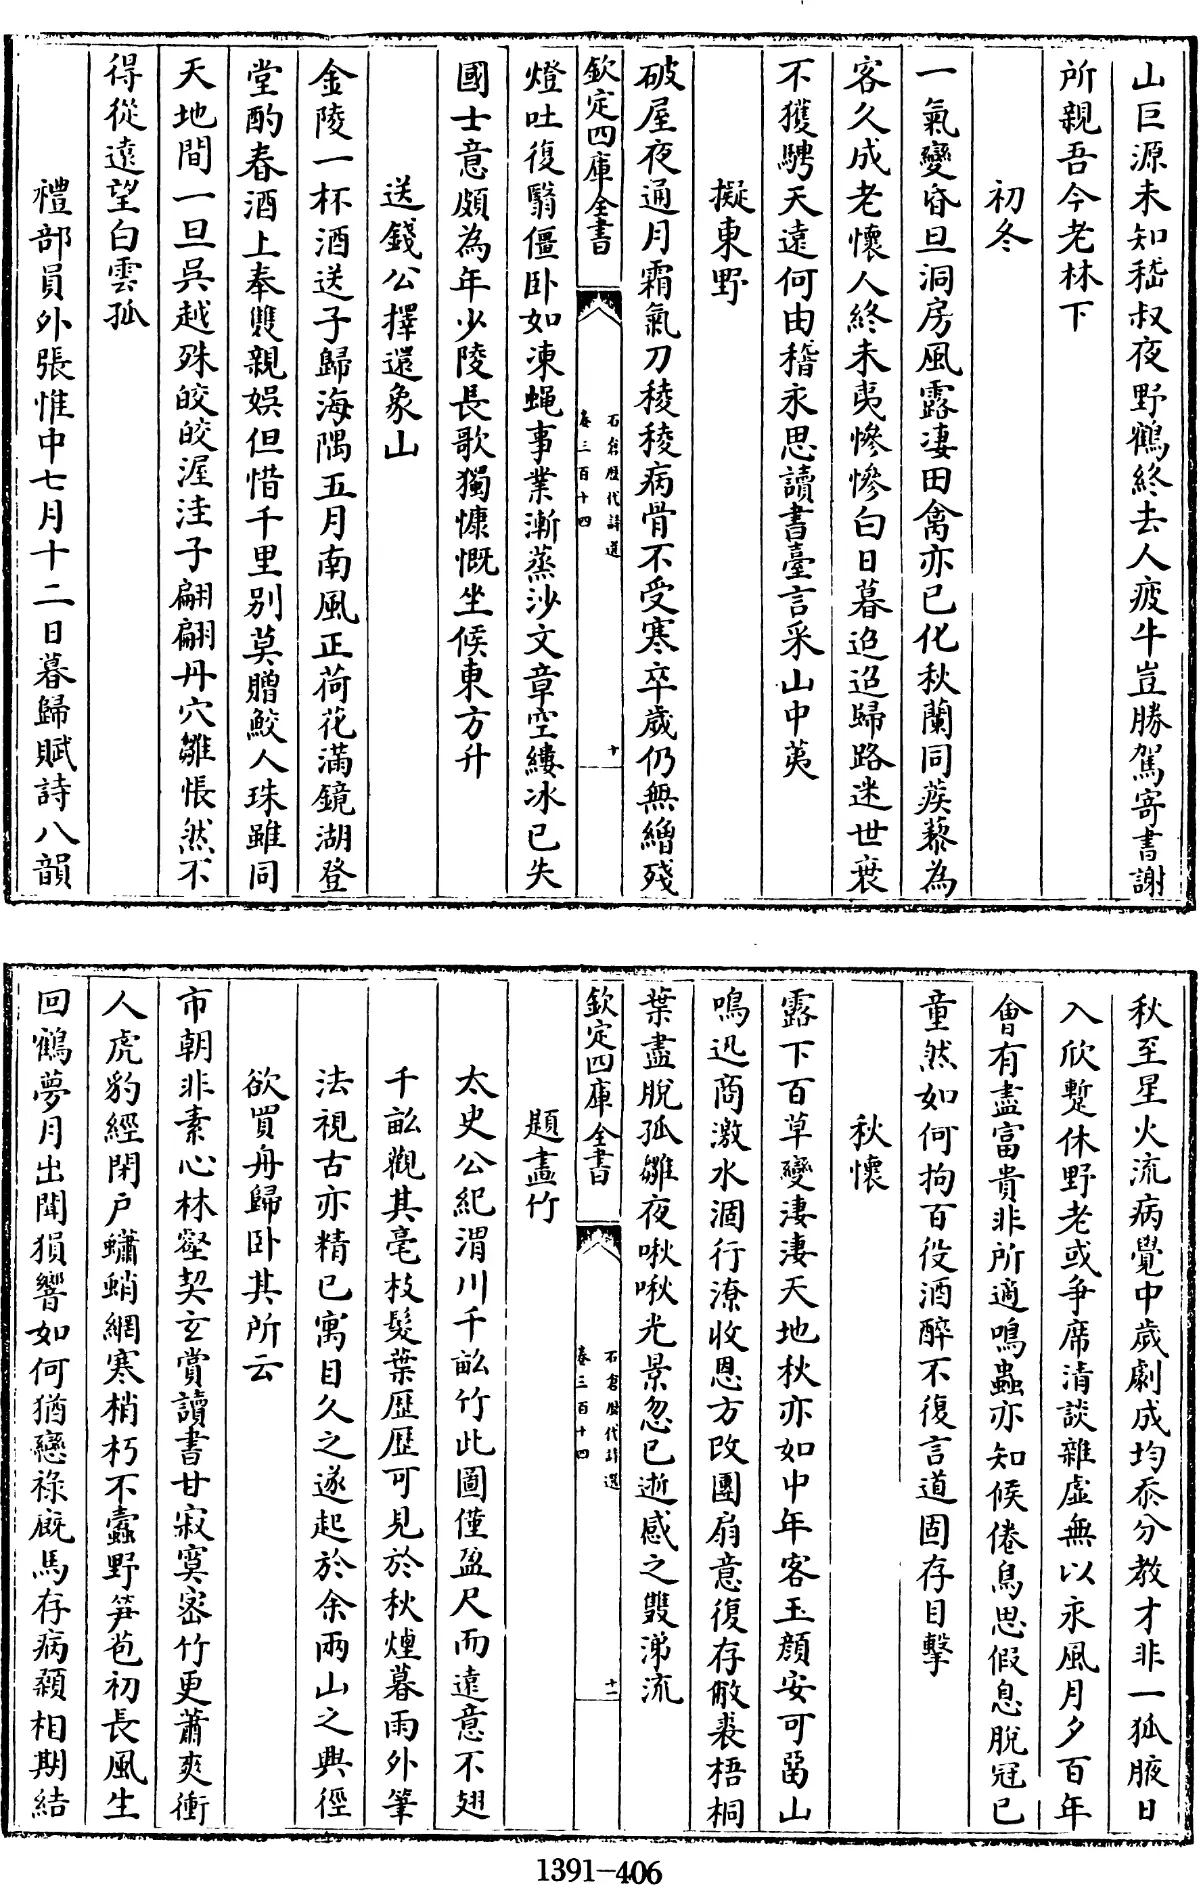 山巨源未知嵇叔夜野鶴終去人疲牛豈勝駕寄書謝
所親吾今老林下
初冬
一氣變昏旦洞房風露凄田禽亦已化秋蘭同蒺藜為
客久成老懷人終未夷慘慘白日暮迢迢歸路迷世衰
不獲騁天遠何由稽永思讀書臺言采山中荑
擬東野
破屋夜通月霜氣刀稜稜病骨不受寒卒歲仍無繒殘
欽定四庫全書
石倉歷代詩選
卷三百十四
十
燈吐復翳僵卧如凍蝇事業漸蒸沙文章空縷冰已失
國士意頗為年少陵長歌獨慷慨坐候東方升
送錢公擇還象山
金陵一杯酒送子歸海隅五月南風正荷花滿鏡湖登
堂酌春酒上奉雙親娱但惜千里別莫贈鮫人珠雖同
天地間一旦吳越殊皎皎渥洼子翩翩丹穴雛悵然不
得從遠望白雲孤
禮部員外張惟中七月十二日暮歸賦詩八韻
秋至星火流病覺中歲劇成均忝分教才非一狐腋日
入欣蹔休野老或爭席清談雜虛無以永風月夕百年
會有盡富貴非所適鳴蟲亦知候倦鳥思假息脫冠已
童然如何拘百役酒醉不復言道固存目擊
秋懷
露下百草變淒淒天地秋亦如中年客玉顏安可畱山
鳴迅商激水涸行潦收恩方改團扇意復存敝裘梧桐
葉盡脫孤雛夜啾啾光景忽已逝感之雙涕流
欽定四庫全書
石倉歷代詩選
卷三百十四
十一
題畫竹
太史公紀渭川千畝竹此圖僅盈尺而遠意不翅
千畝觀其毫枝髮葉歷歷可見於秋煙暮雨外筆
法視古亦精已寓目久之遂起於余兩山之興徑
欲買舟歸卧其所云
市朝非素心林壑契玄賞讀書甘寂寞密竹更蕭爽衝
人虎豹經閉戶蠨蛸網寒梢朽不蠹野笋苞初長風生
回鶴夢月出聞猿響如何猶戀祿廐馬存病顙相期結
1391-406